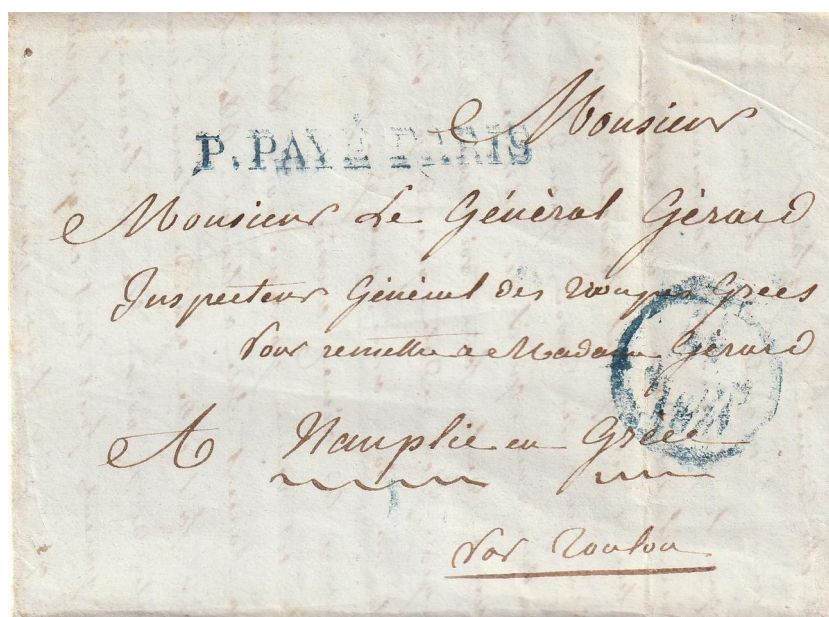 Monsieur
P. PAYÉ PARIS
Monsieur Le Général Gérard
Inspecteur Général des troupes Grees
Pour remettre a Madame Gérard
A Nauplie en Grèce
Par Toulon